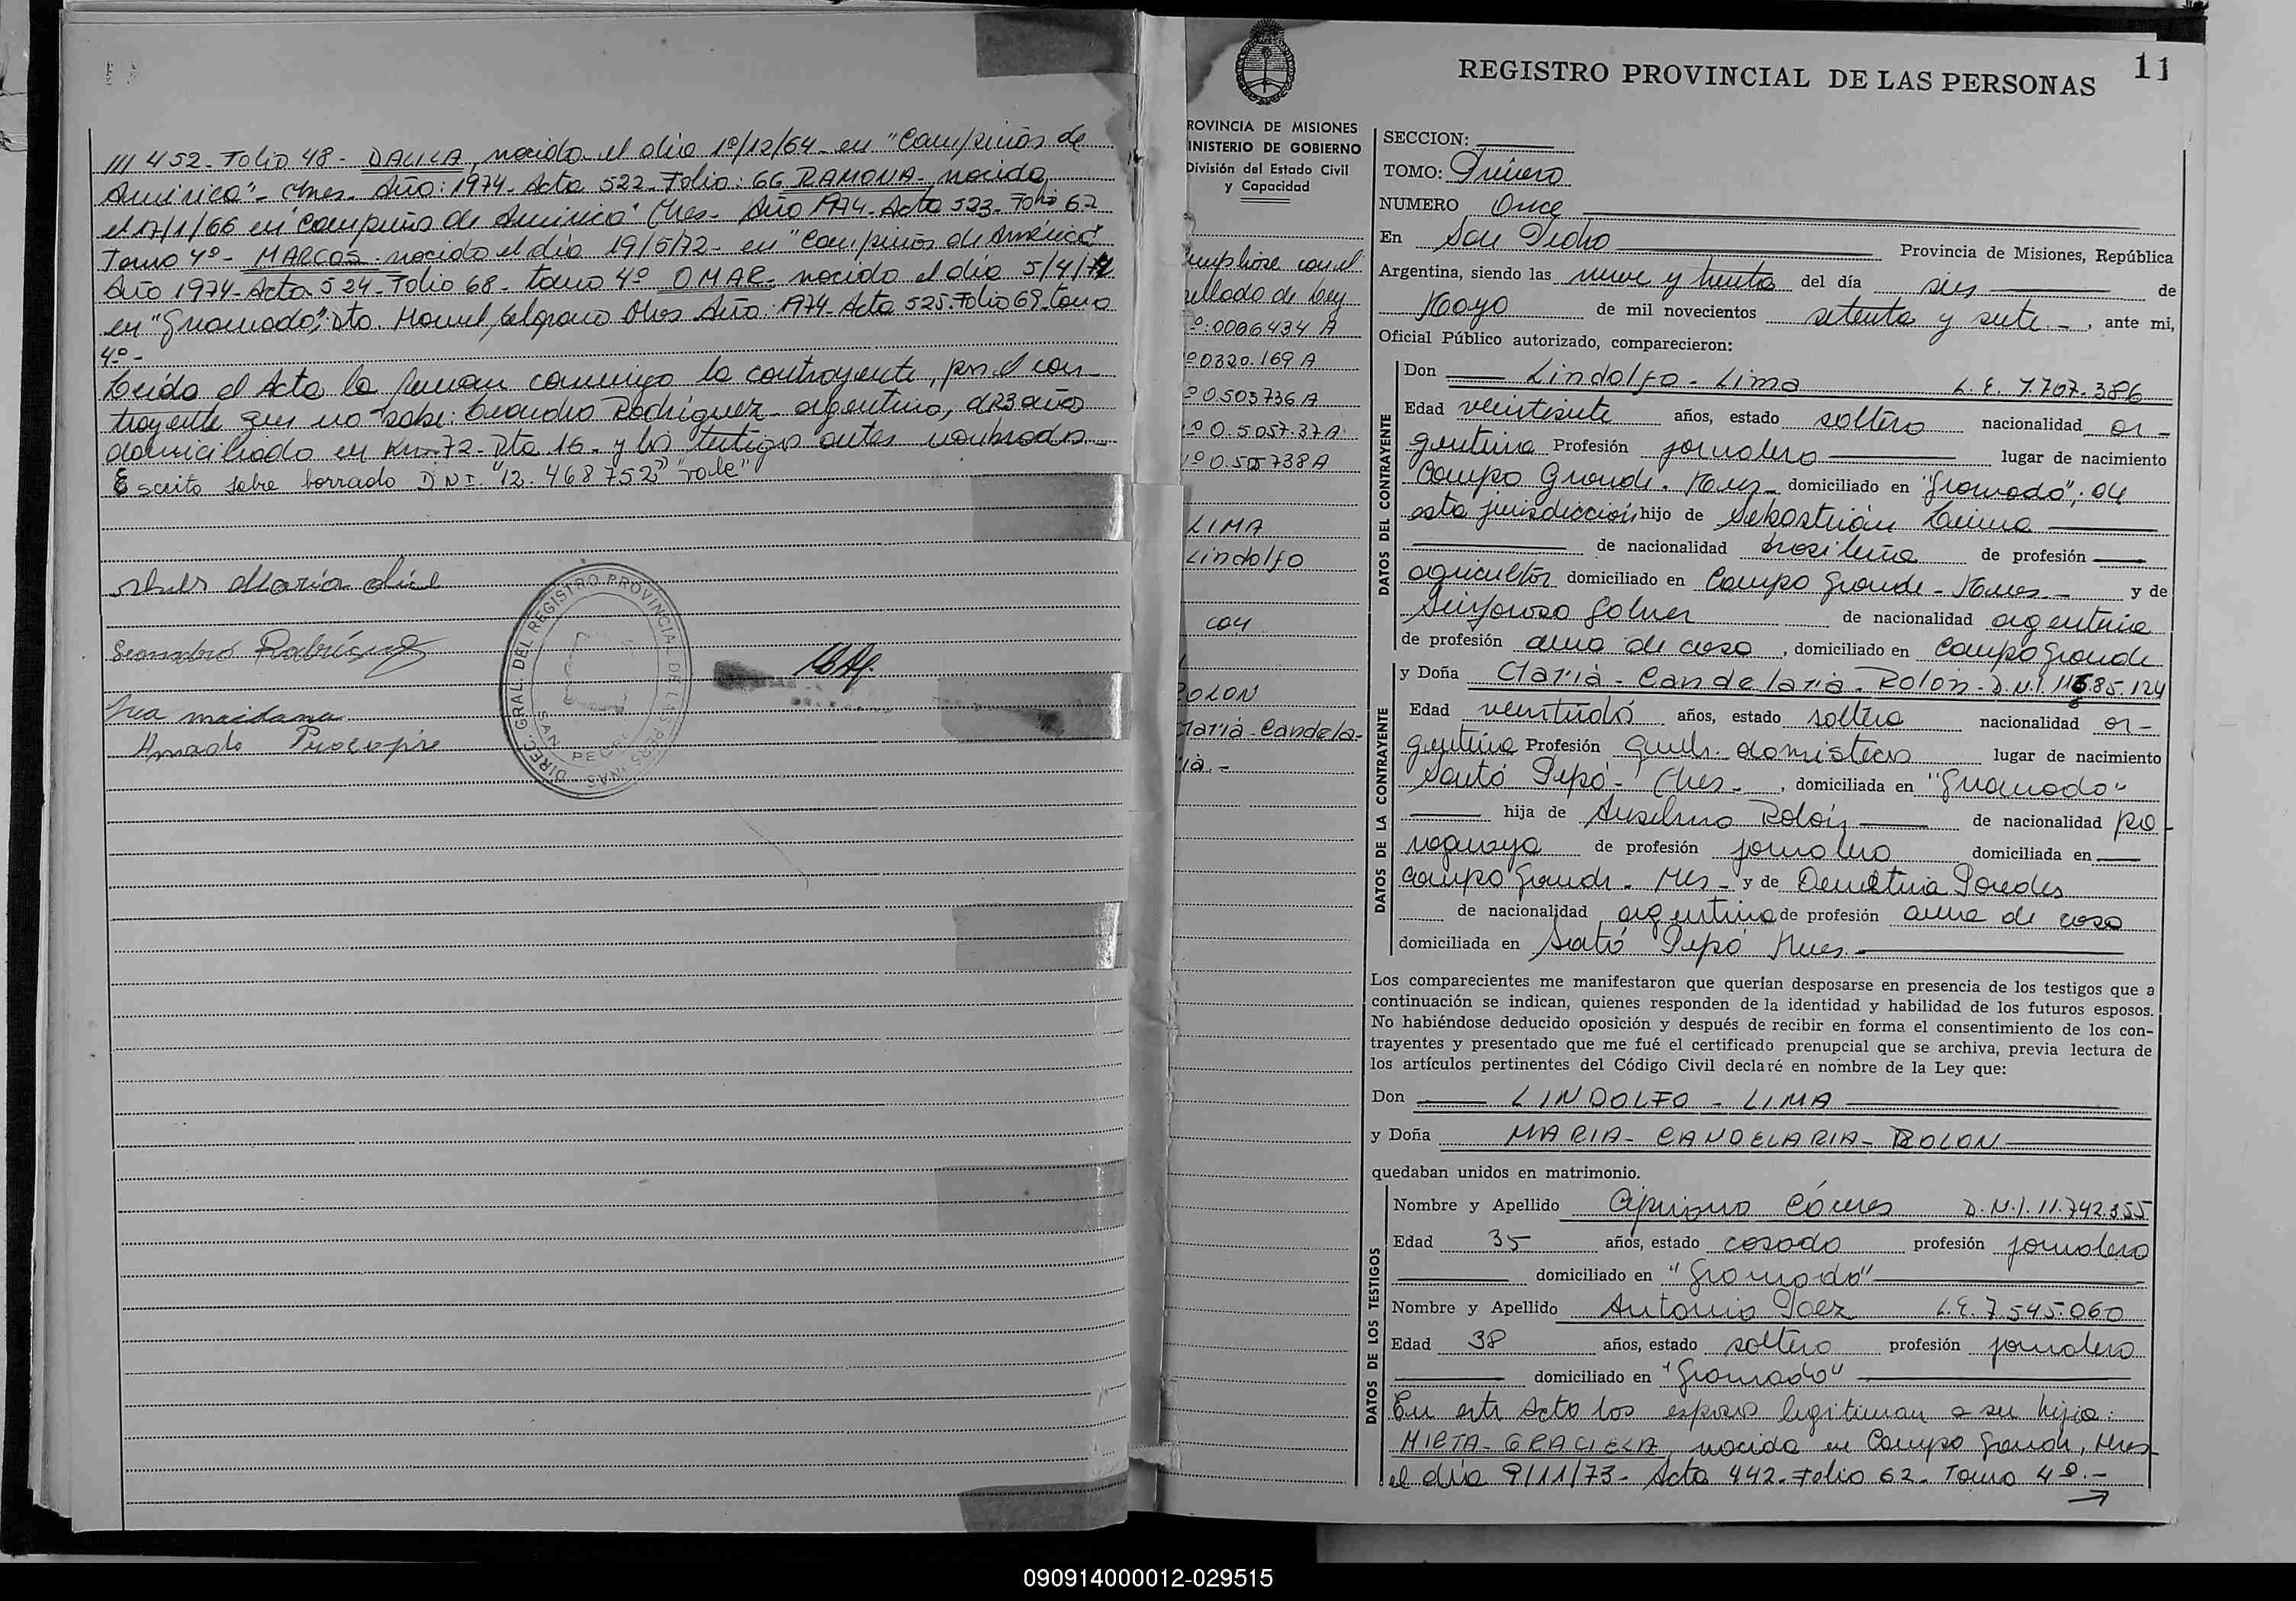 /// 452- Folio 48- DALILA, nacida el día 1º/12/64- en "Campiñas de
América"- Mnes. Año: 1974- Acta 522- Folio: 66 RAMONA- nacida
el 17/1/66 en "Campiñas de América" Mnes- Año 1974- Acta 523- Folio 67
Tomo 4º- MARCOS- nacido el día 19/5/72- en "Campiñas de América"
Año 1974- Acta 524- Folio 68- tomo 4º OMAR- nacido el día 5/4/
en "Gramado", Dto. Manuel Belgrano Mnes Año: 1974- Acta 525- Folio 69- tomo
4º-
Leída el Acta la firman conmigo la contrayente, por el con-
trayente que no sabe: Leandro Rodríguez- argentino, de 23 años
domiciliado en Km-72- Dto 16- y los testigos antes nombrados-
Escrito sobre borrado D.N.I. "12.468752"
Leandro Rodríguez
DIREC. GRAL. DEL REGISTRO PROVINCIAL DE LAS PERSONAS
SAN PEDRO
REGISTRO PROVINCIAL DE LAS PERSONAS
11
ROVINCIA DE MISIONES
INISTERIO DE GOBIERNO
División del Estado Civil
y Capacidad
sellado de Ley
º:0006434 A
º0320.169 A
º0.503736 A
º0.5057.37A
º0.505738A
LIMA
Lindolfo
con
ROLON
María-Candela-
ria.-
SECCION:
TOMO: Primero
NUMERO Once
En San Pedro Provincia de Misiones, República
Argentina, siendo las nueve y treinta del día seis de
Mayo de mil novecientos setenta y siete.-, ante mi,
Oficial Público autorizado, comparecieron:
DATOS DEL CONTRAYENTE
Don Lindolfo- Lima L.E. 7.707.386
Edad veintisiete años, estado soltero nacionalidad ar-
gentina Profesión jornalero lugar de nacimiento
Campo Grande. Mnes- domiciliado en "Gramado", de
esta jurisdicción hijo de Sebastián Lima
de nacionalidad brasileña de profesión
agricultor domiciliado en Campo Grande- Mnes- y de
Sinforosa de nacionalidad argentina
de profesión ama de casa, domiciliado en Campo Grande
DATOS DE LA CONTRAYENTE
y Doña María- Candelaria- Rolón- D.N.I. 11.685.124
Edad veintidós años, estado soltera nacionalidad ar-
gentina Profesión queh. domésticos lugar de nacimiento
Santo Pipó- Mnes-, domiciliada en "Gramado"
hija de Anselmo Rolón de nacionalidad pa-
raguaya de profesión jornalero domiciliada en
Campo Grande- Mes- y de Demetria Paredes
de nacionalidad argentina de profesión ama de casa
domiciliada en Santo Pipó Mnes.-
Los comparecientes me manifestaron que querían desposarse en presencia de los testigos que a
continuación se indican, quienes responden de la identidad y habilidad de los futuros esposos.
No habiéndose deducido oposición y después de recibir en forma el consentimiento de los con-
trayentes y presentado que me fué el certificado prenupcial que se archiva, previa lectura de
los artículos pertinentes del Código Civil declaré en nombre de la Ley que:
Don LINDOLFO - LIMA
y Doña MARIA- CANDELARIA- ROLON
quedaban unidos en matrimonio.
DATOS DE LOS TESTIGOS
Nombre y Apellido Cipriano D.N.I. 11.742.355
Edad 35 años, estado casado profesión jornalero
domiciliado en "Gramado"
Nombre y Apellido Antonio Paez L.E. 7.545.060
Edad 38 años, estado soltero profesión jornalero
domiciliado en "Gramado"
En este Acto los esposos legitiman a su hija:
MIRTA- GRACIELA, nacida en Campo Grande, Mnes-
el día 9/11/73- Acta 442- Folio 62- Tomo 4º.-
090914000012-029515